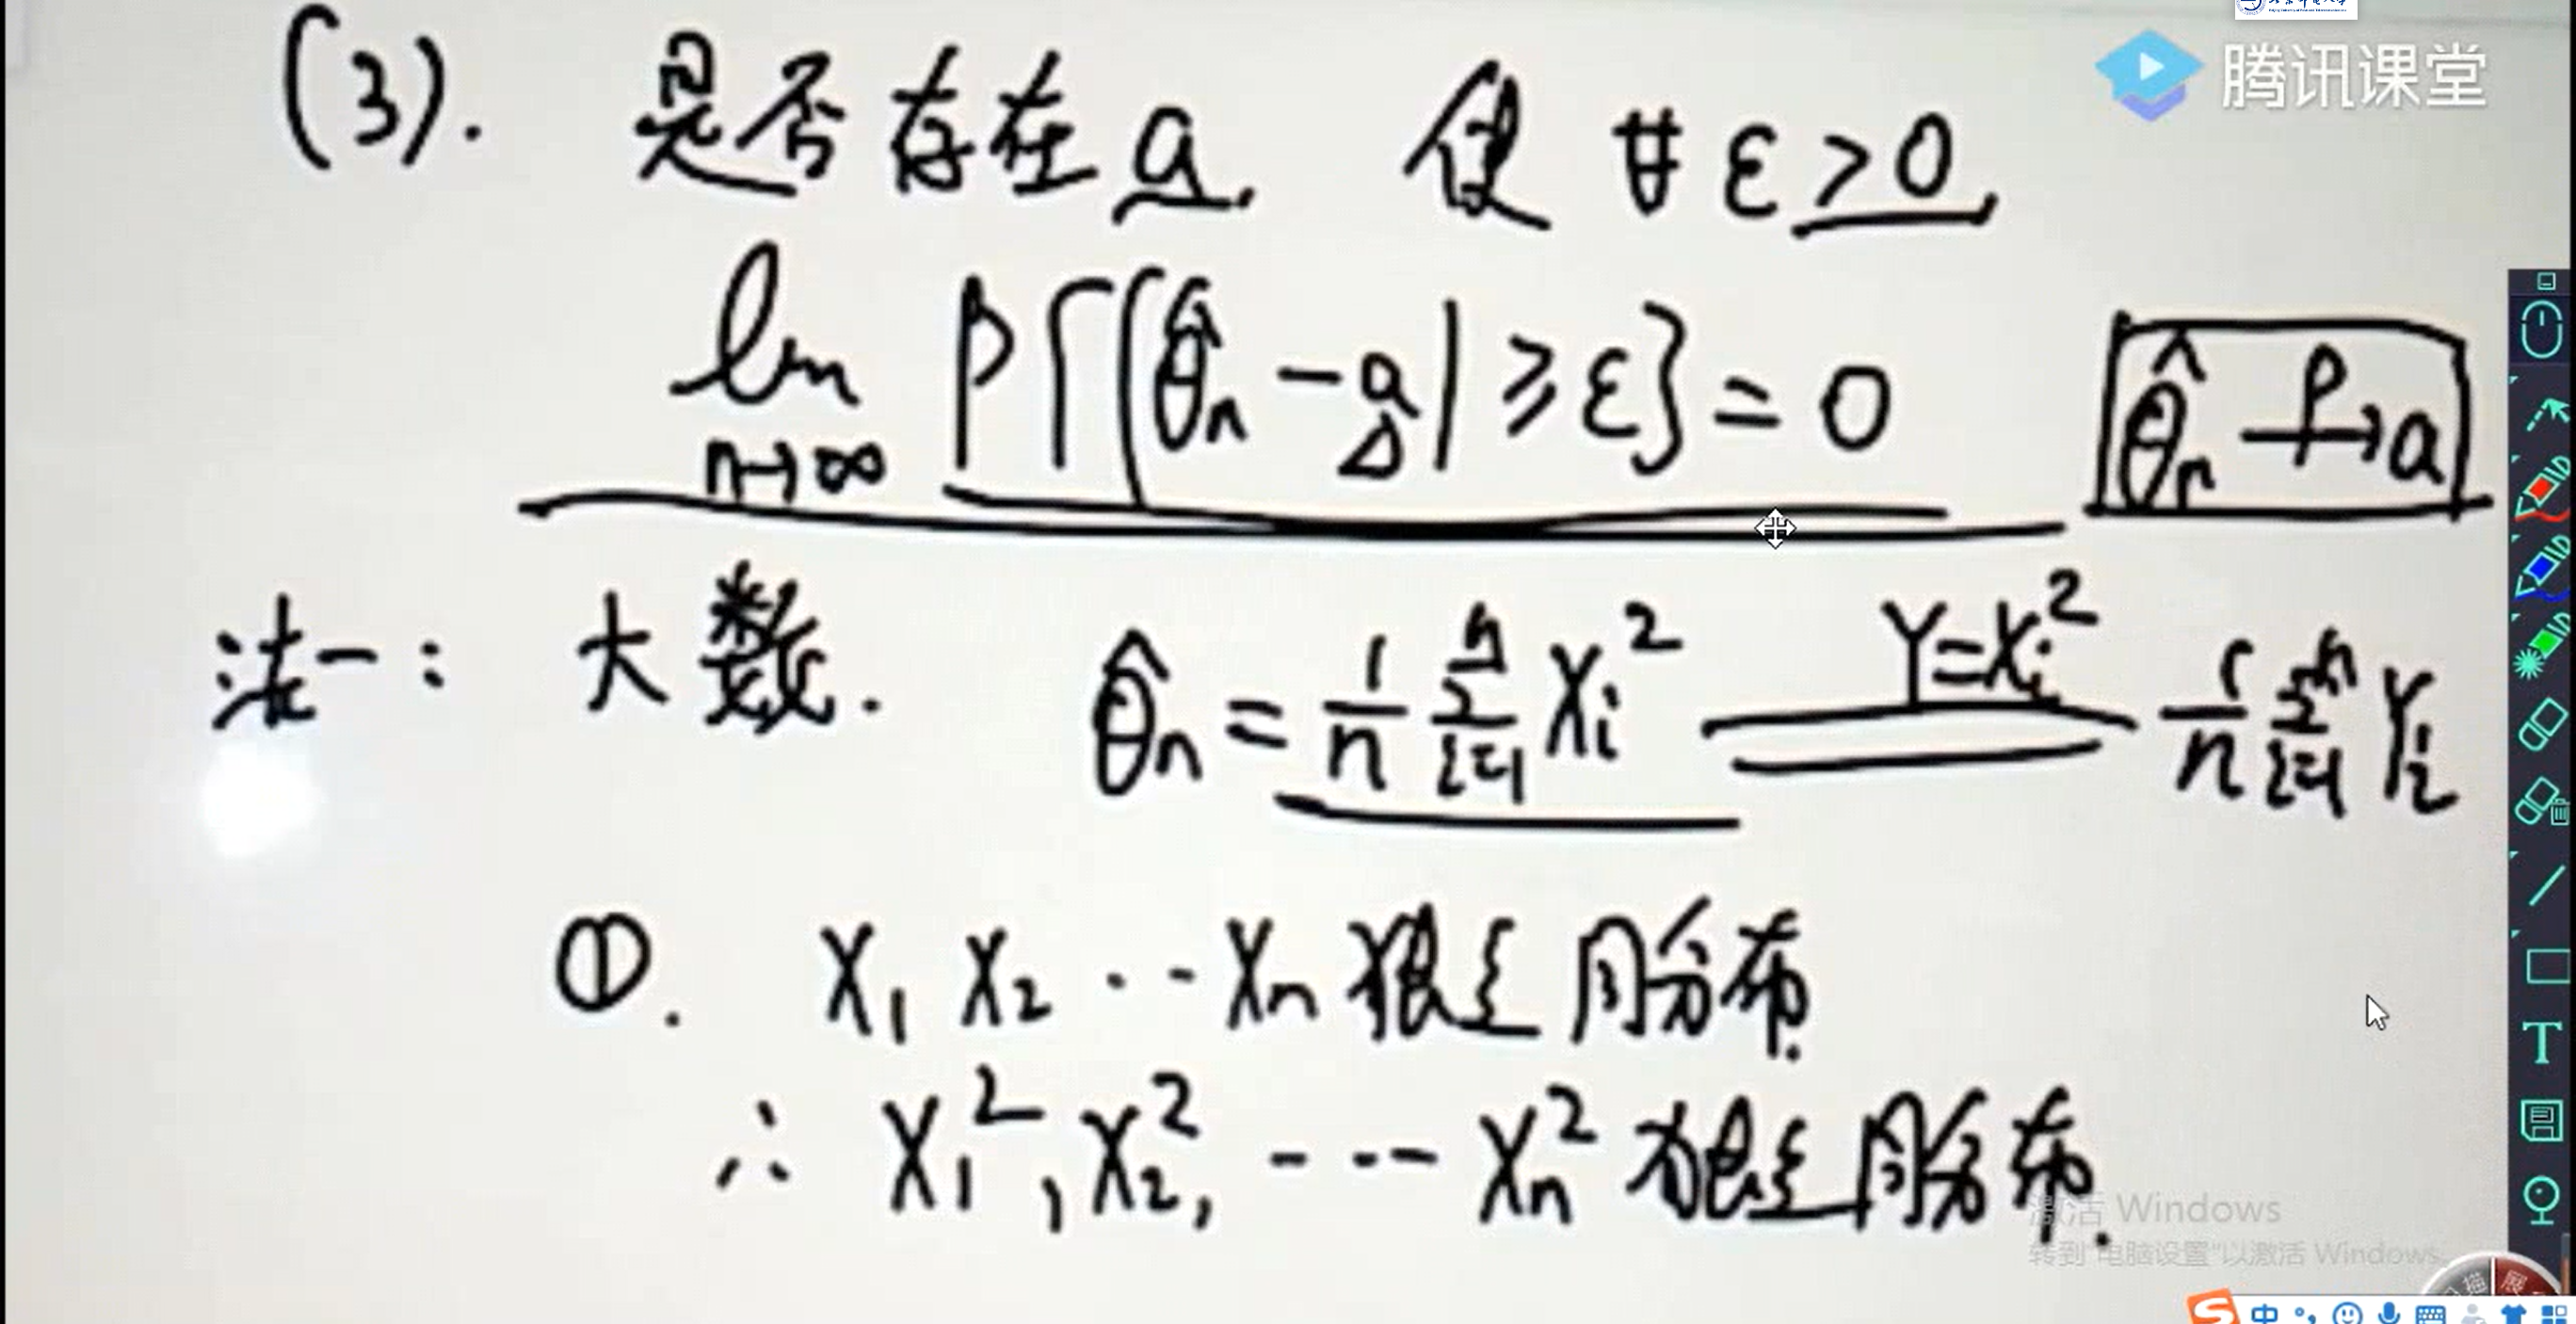 腾讯课堂
(3). 是否存在a. 使 ∀ε>0,
lim n→∞ P{|θ̂n-a|≥ε}=0
θ̂n P→ a
法一: 大数. θ̂n = 1/n Σ i=1 n Xi² Y=Xi² 1/n Σ i=1 n Yi
①. X1 X2 ··- Xn 独立同分布.
∴ X1², X2², - -·- Xn² 独立同分布.
激活 Windows
转到"电脑设置"以激活 Windows。
T
S 中